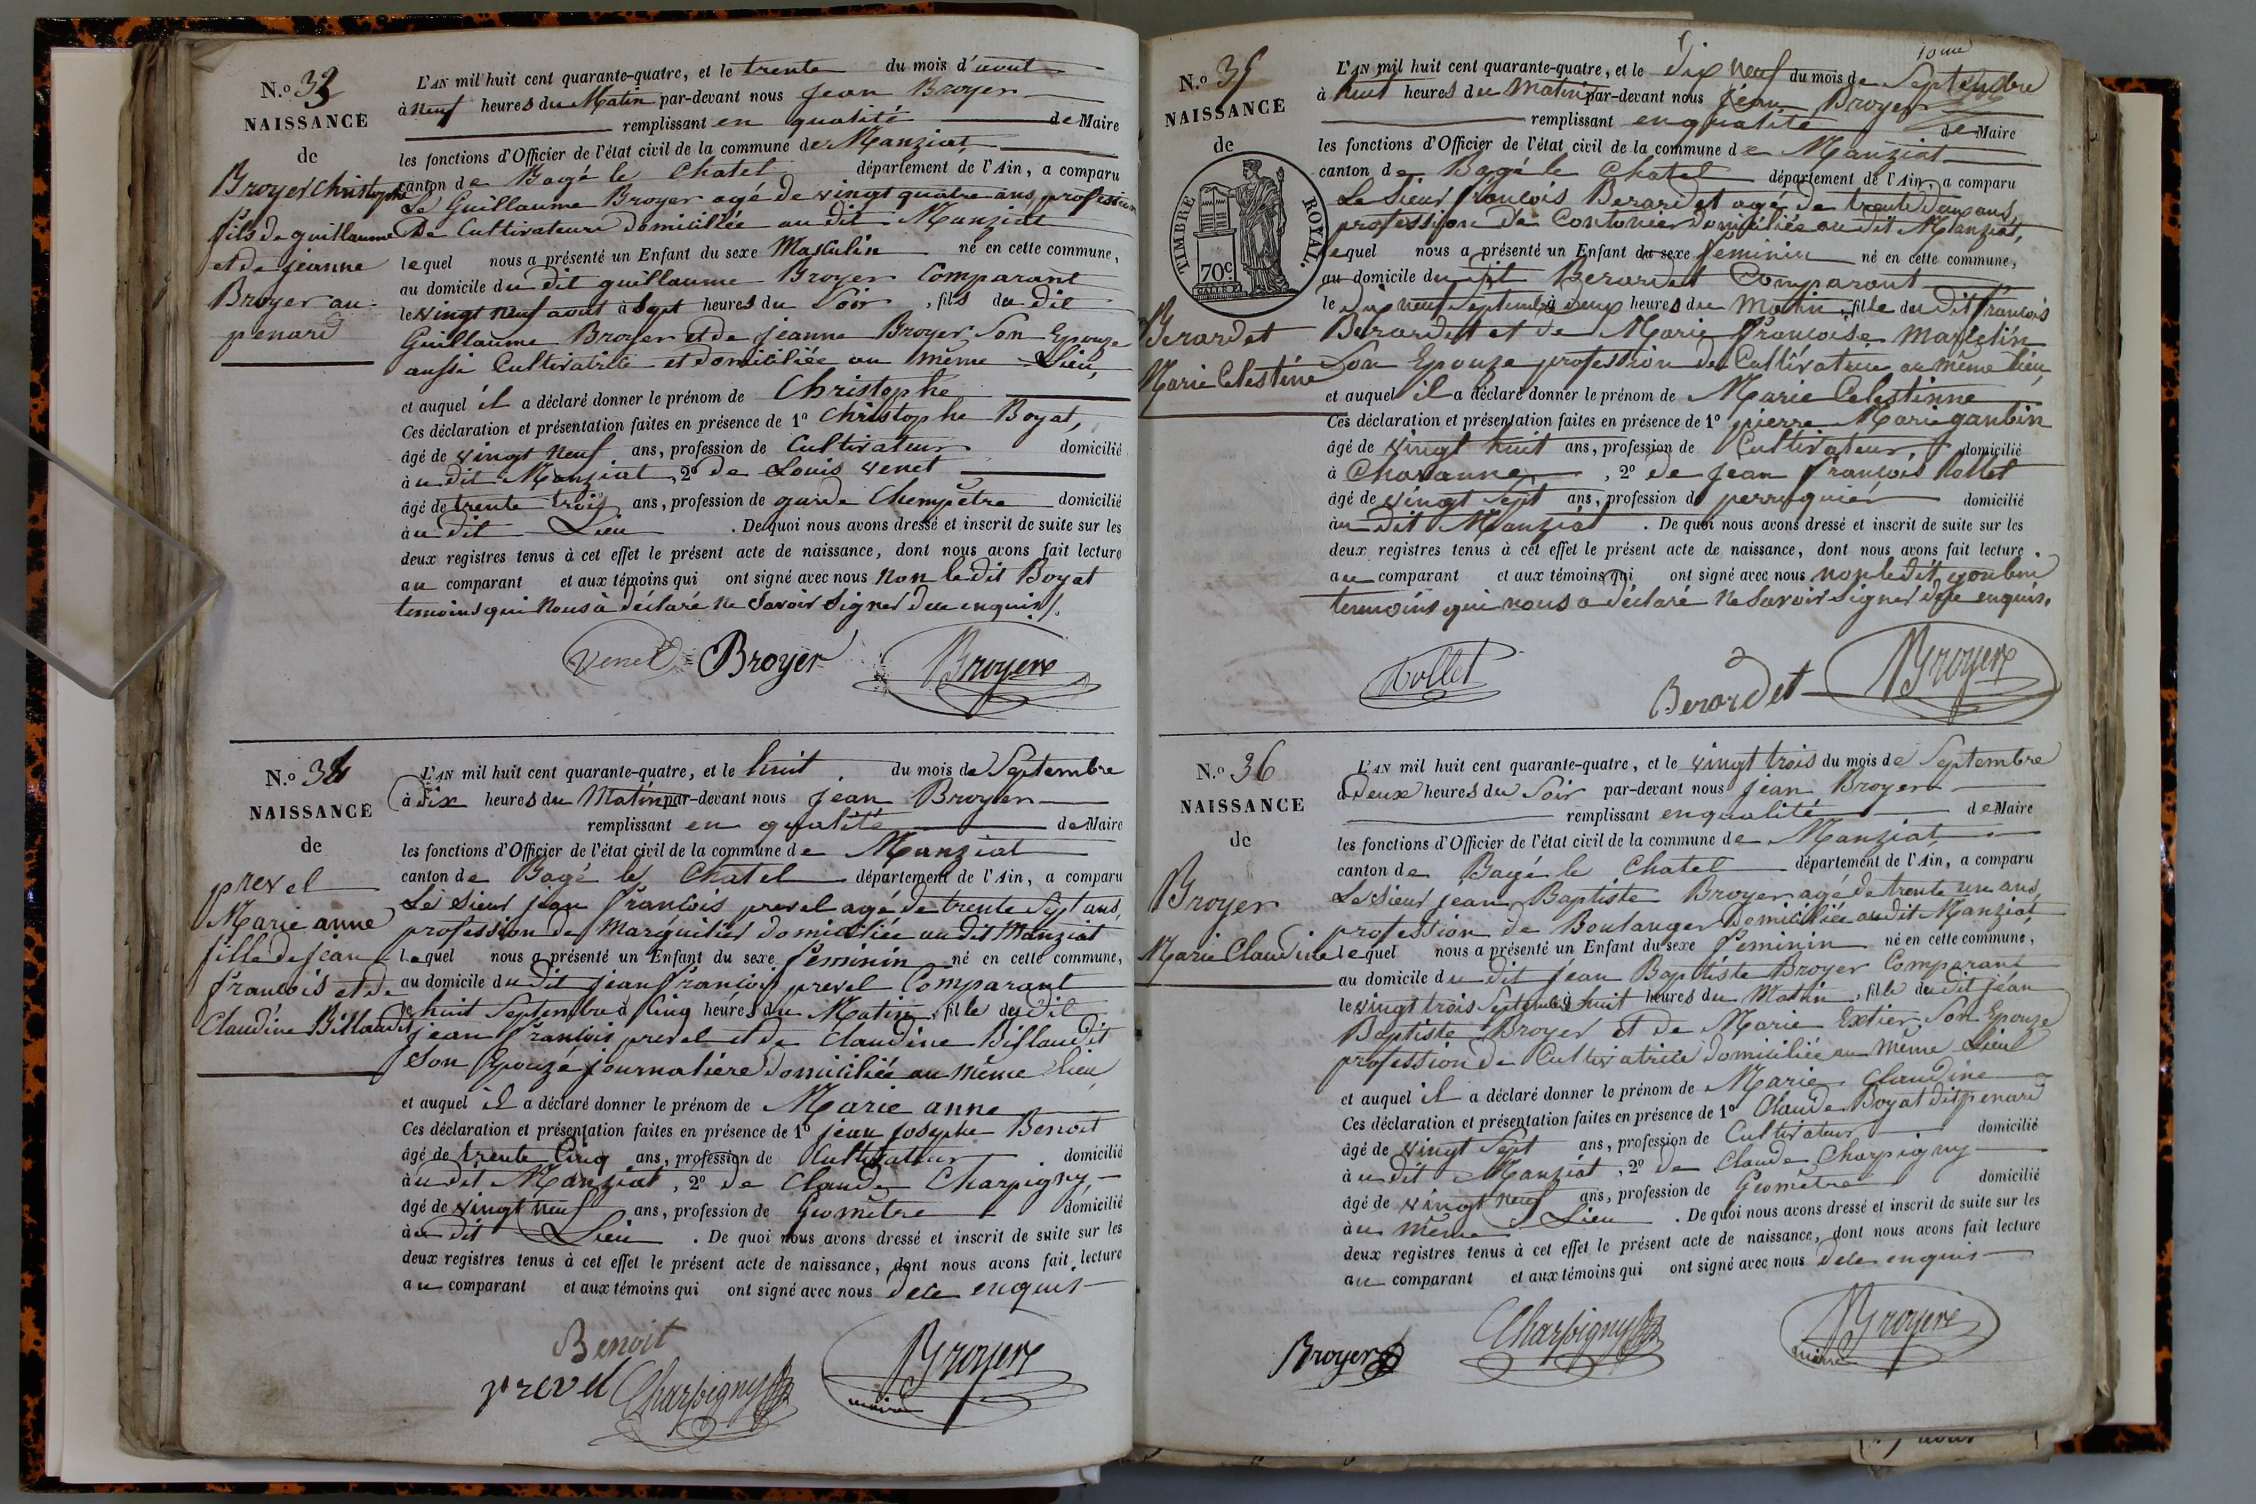 N.o 33
NAISSANCE
de
Broyer Christophe
fils de guillaume
et de jeanne
Broyer au
penard
L'AN mil huit cent quarante-quatre, et le trente du mois d'aout
à neuf heures du Matin par-devant nous jean Broyer
remplissant en qualité de Maire
les fonctions d'Officier de l'état civil de la commune de Manziat
canton de Bagé le Chatel département de l'Ain, a comparu
Le Guillaume Broyer agé de vingt quatre ans, profession
De Cultivateur domicillée au dit Manziat
lequel nous a présenté un Enfant du sexe Masculin né en cette commune,
au domicile du dit guillaume Broyer Comparant
le vingt neuf aout à Sept heures du Soir, fils du dit
Guillaume Broyer et de jeanne Broyer Son Epouze
aussi Cultivatrice et domiciliée au même Lieu,
et auquel il a déclaré donner le prénom de Christophe
Ces déclaration et présentation faites en présence de 1o Christophe Boyat,
âgé de vingt neuf ans, profession de Cultivateur domicilié
à u dit Manziat, 2o de Louis venet
âgé de trente trois ans, profession de garde Chempêtre domicilié
à u dit Lieu. De quoi nous avons dressé et inscrit de suite sur les
deux registres tenus à cet effet le présent acte de naissance, dont nous avons fait lecture
au comparant et aux témoins qui ont signé avec nous non le dit Boyat
temoins qui Nous à déclaré ne Savoir Signer de ce enquis
Venet Broyer Broyer
N.o 34
NAISSANCE
de
prevel
Marie anne
fille de jean
francois et de
Claudine Billaudit
L'AN mil huit cent quarante-quatre, et le huit du mois de Septembre
à dix heures du Matin par-devant nous jean Broyer
remplissant en qualité de Maire
les fonctions d'Officier de l'état civil de la commune de Manziat
canton de Bagé le Chatel département de l'Ain, a comparu
Le Sieur jean francois prevel agé de trente Sept ans,
profession de Marguilier domiciliée au dit Manziat
lequel nous a présenté un Enfant du sexe feminin né en cette commune,
au domicile du dit jean francois prevel Comparant
le huit Septembre à Cinq heures du Matin, fille du dit
jean francois prevel et de Claudine Billaudit
Son Epouze journaliére domiciliée au même lieu
et auquel il a déclaré donner le prénom de Marie anne
Ces déclaration et présentation faites en présence de 1o jean josephe Benoit
âgé de trente Cinq ans, profession de Cultivateur domicilié
à u dit Manziat, 2o de Claude Charpigny,
âgé de vingt neuf ans, profession de Géomêtre domicilié
à u dit Lieu. De quoi nous avons dressé et inscrit de suite sur les
deux registres tenus à cet effet le présent acte de naissance, dont nous avons fait lecture
au comparant et aux témoins qui ont signé avec nous de ce enquis
Benoit
prevel Charpigny Broyer
maire
N.o 35
NAISSANCE
de
TIMBRE ROYAL.
70c
Berardet
Marie Celestine
10me
L'AN mil huit cent quarante-quatre, et le dix neuf du mois de Septembre
à huit heures du matin par-devant nous jean Broyer
remplissant en qualité de Maire
les fonctions d'Officier de l'état civil de la commune de Manziat
canton de Bagé le Chatel département de l'Ain, a comparu
Le Sieur francois Berardet agé de trente deux ans,
profession de Contonier domiciliée au dit Manziat,
lequel nous a présenté un Enfant du sexe feminin né en cette commune,
au domicile du dit Berardet Comparant
le dix neuf Septembre à deux heures du Matin, fille du dit francois
Berardet et de Marie francoise
Son Epouze profession de Cultivatrice au même lieu,
et auquel il a déclaré donner le prénom de Marie Celestinne
Ces déclaration et présentation faites en présence de 1o pierre Marie gaubin
âgé de vingt huit ans, profession de Cultivateur, domicilié
à Chavanne, 2o de jean francois
âgé de vingt Sept ans, profession de perruquier domicilié
àu dit Manziat. De quoi nous avons dressé et inscrit de suite sur les
deux registres tenus à cet effet le présent acte de naissance, dont nous avons fait lecture
au comparant et aux témoins qui ont signé avec nous non le dit
temoins qui nous a déclaré ne Savoir Signer de ce enquis.
Berardet Broyer
N.o 36
NAISSANCE
de
Broyer
Marie Claudine
L'AN mil huit cent quarante-quatre, et le vingt trois du mois de Septembre
à Deux heures du Soir par-devant nous jean Broyer
remplissant en qualité de Maire
les fonctions d'Officier de l'état civil de la commune de Manziat
canton de Bagé le Chatel département de l'Ain, a comparu
Le Sieur jean Baptiste Broyer agé de trente un ans,
profession de Boulanger domiciliée au dit Manziat
lequel nous a présenté un Enfant du sexe feminin né en cette commune,
au domicile du dit jean Baptiste Broyer Comparant
le vingt trois Septembre à huit heures du Matin, fille du dit jean
Baptiste Broyer et de Marie Extier Son Epouze
profession de Cultivatrice domiciliée au même Lieu
et auquel il a déclaré donner le prénom de Marie Claudine
Ces déclaration et présentation faites en présence de 1o Claude Boyat dit penard
âgé de vingt Sept ans, profession de Cultivateur domicilié
à u dit Manziat, 2o de Claude Charpigny
âgé de vingt neuf ans, profession de Géomêtre domicilié
àu même Lieu. De quoi nous avons dressé et inscrit de suite sur les
deux registres tenus à cet effet le présent acte de naissance, dont nous avons fait lecture
au comparant et aux témoins qui ont signé avec nous de ce enquis
Broyer Charpigny Broyer
maire